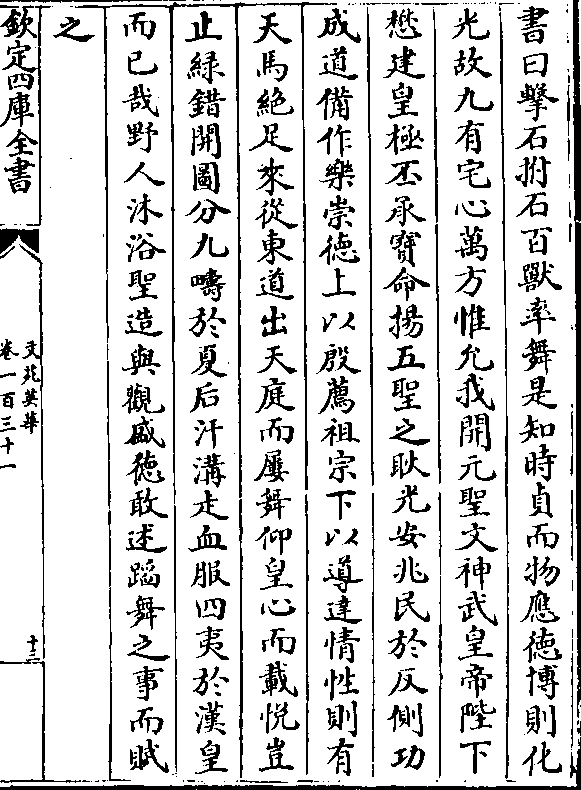 書曰擊石拊石百獸率舞是知時貞而物應徳博則化
光故九有宅心萬方惟允我開元聖文神武皇帝陛下
懋建皇極丕承寳命揚五聖之耿光安兆民於反側功
成道備作樂崇徳上以殷薦祖宗下以導達情性則有
天馬絶足來從東道出天庭而屢舞仰皇心而載悦豈
止緑錯開圖分九疇於夏后汗溝走血服四夷於漢皇
而已哉野人沐浴聖造與觀盛徳敢述蹈舞之事而賦
之
欽定四庫全書
文苑英華
卷一百三十一
十三